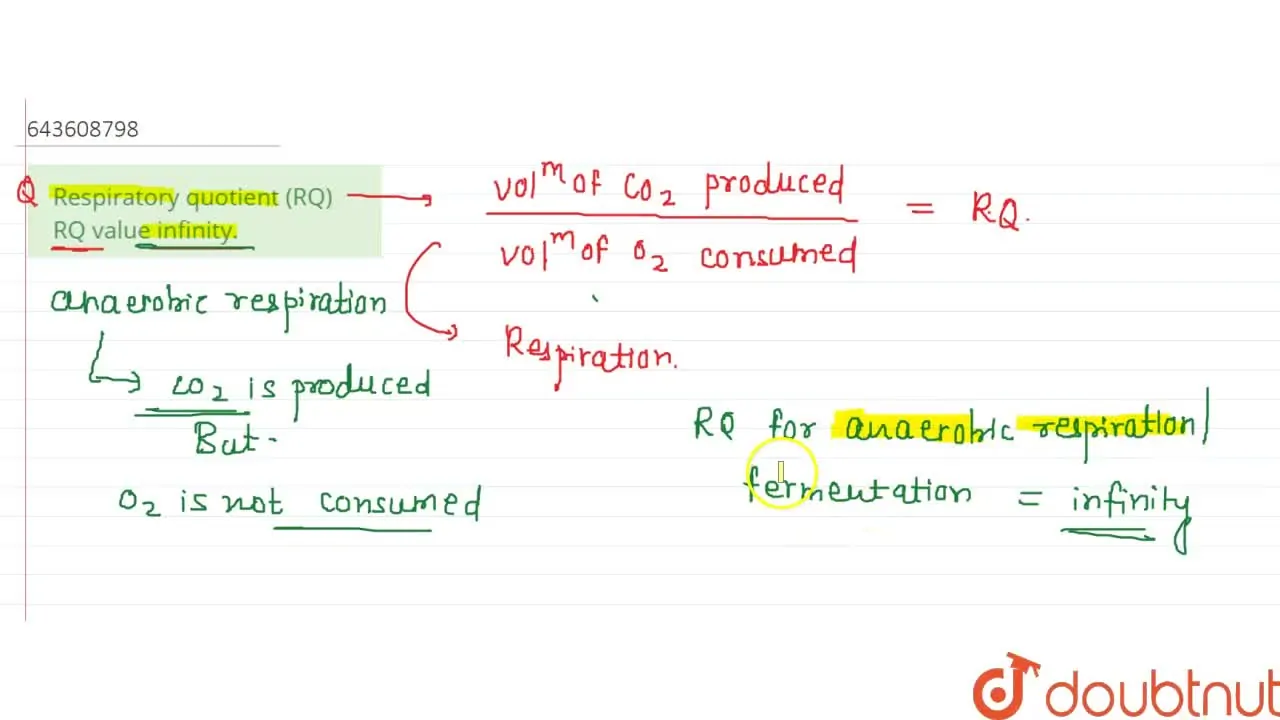 643608798
Q Respiratory quotient (RQ)
RQ value infinity.
vol^m of CO2 produced
vol^m of O2 consumed
= R.Q.
Respiration.
anaerobic respiration
CO2 is produced
But
O2 is not consumed
RQ for anaerobic respiration/
fermentation = infinity
doubtnut